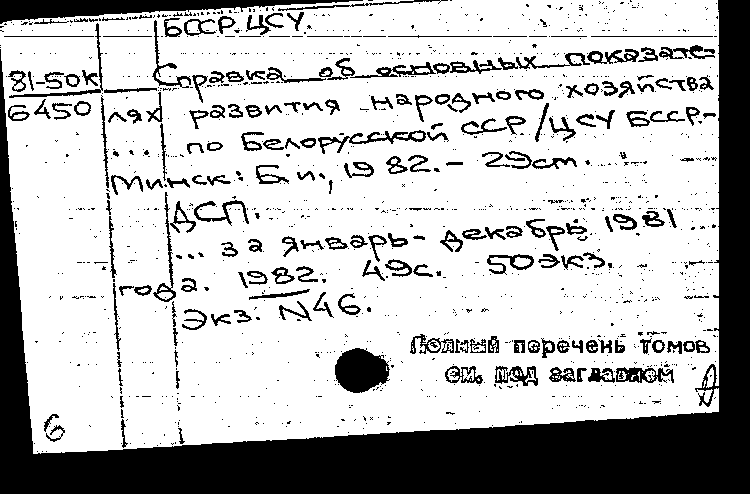 БССР. ЦСУ.
81-50К Справка об основных показате-
6450 лях развития народного хозяйства
... по Белорусской ССР / ЦСУ БССР.-
Минск: Б.и., 1982.- 29см.
ДСП.
... за январь- декабрь 1981 ...
года. 1982. 49с. 50экз.
Экз. N46.
Полный перечень томов
см. под заглавием
6